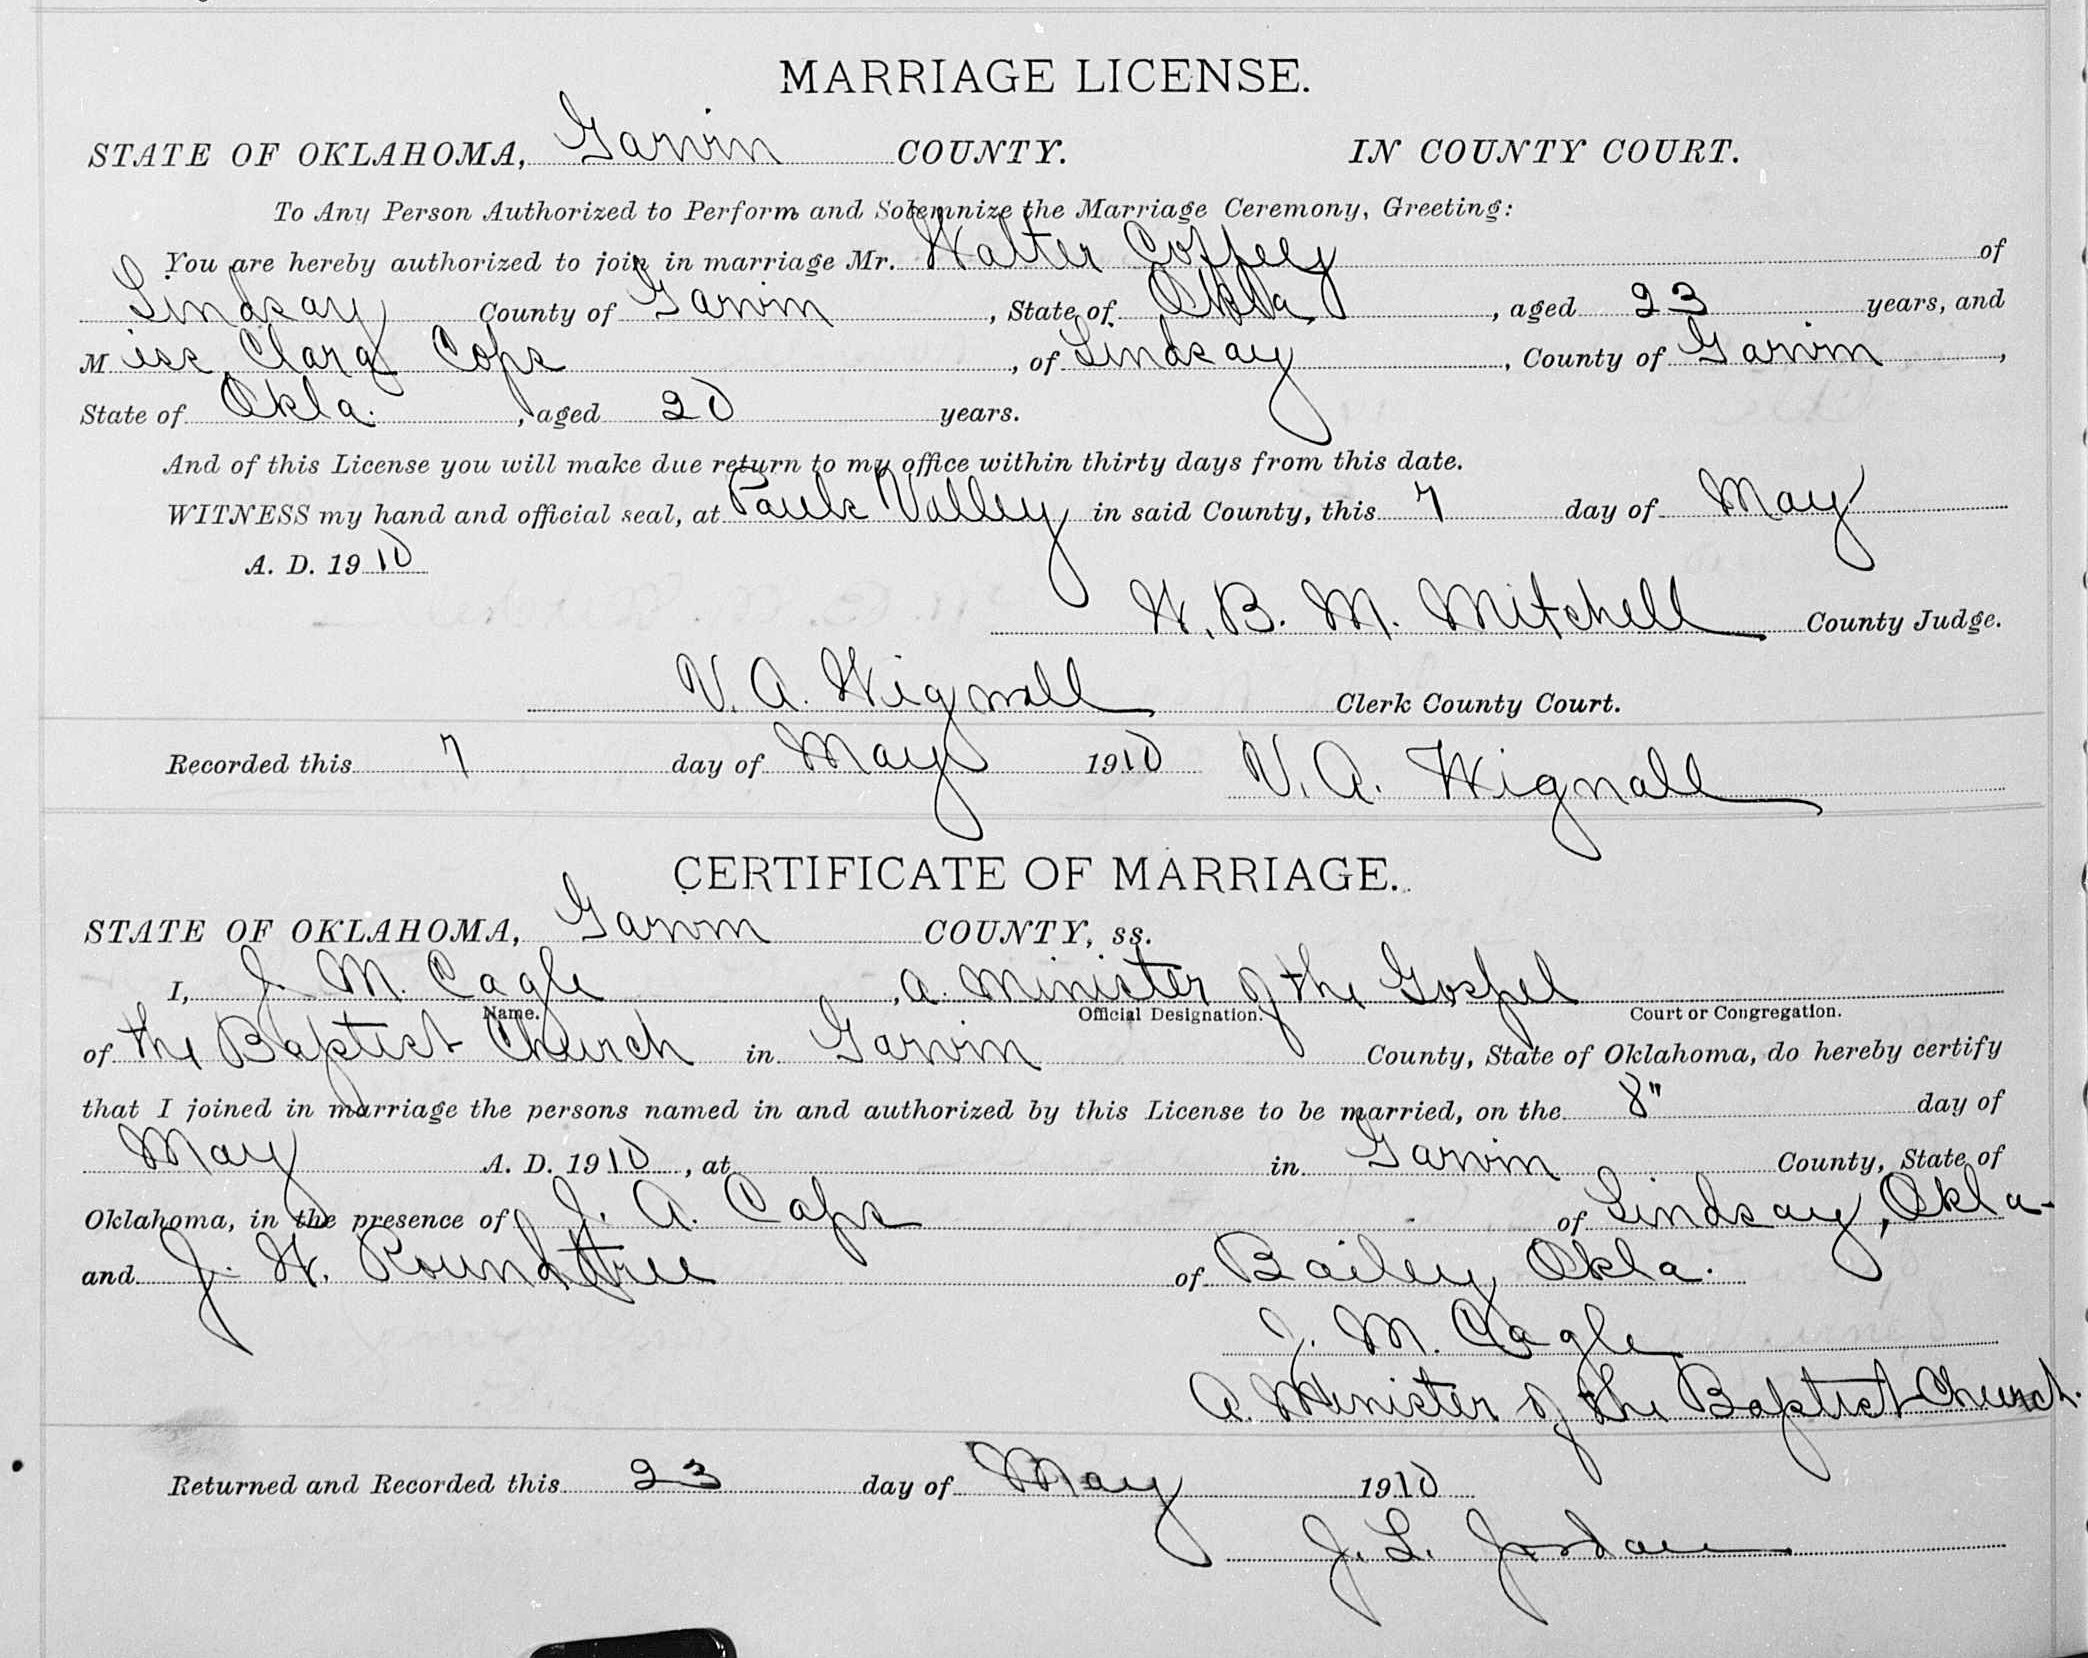 MARRIAGE LICENSE.
STATE OF OKLAHOMA, Garvin COUNTY. IN COUNTY COURT.
To Any Person Authorized to Perform and Solemnize the Marriage Ceremony, Greeting:
You are hereby authorized to join in marriage Mr. Walter Coffey of
Lindsay County of Garvin, State of Okla, aged 23 years, and
Miss Clara Cops, of Lindsay, County of Garvin,
State of Okla., aged 20 years.
And of this License you will make due return to my office within thirty days from this date.
WITNESS my hand and official seal, at Pauls Valley in said County, this 7 day of May
A. D. 1910
W. B. M. Mitchell County Judge.
V. A. Wignall Clerk County Court.
Recorded this 7 day of May 1910 V. A. Wignall
CERTIFICATE OF MARRIAGE.
STATE OF OKLAHOMA, Garvin COUNTY, ss.
I, J. M. Cagle, a Minister of the Gospel
Name. Official Designation. Court or Congregation.
of the Baptist Church in Garvin County, State of Oklahoma, do hereby certify
that I joined in marriage the persons named in and authorized by this License to be married, on the 8" day of
May A. D. 1910, at in Garvin County, State of
Oklahoma, in the presence of J. A. Caps of Lindsay, Okla-
and J. W. Roundtree of Bailey Okla.
J. M. Cagle
A. Minister of the Baptist Church.
Returned and Recorded this 23 day of May 1910
J. L. Jordan